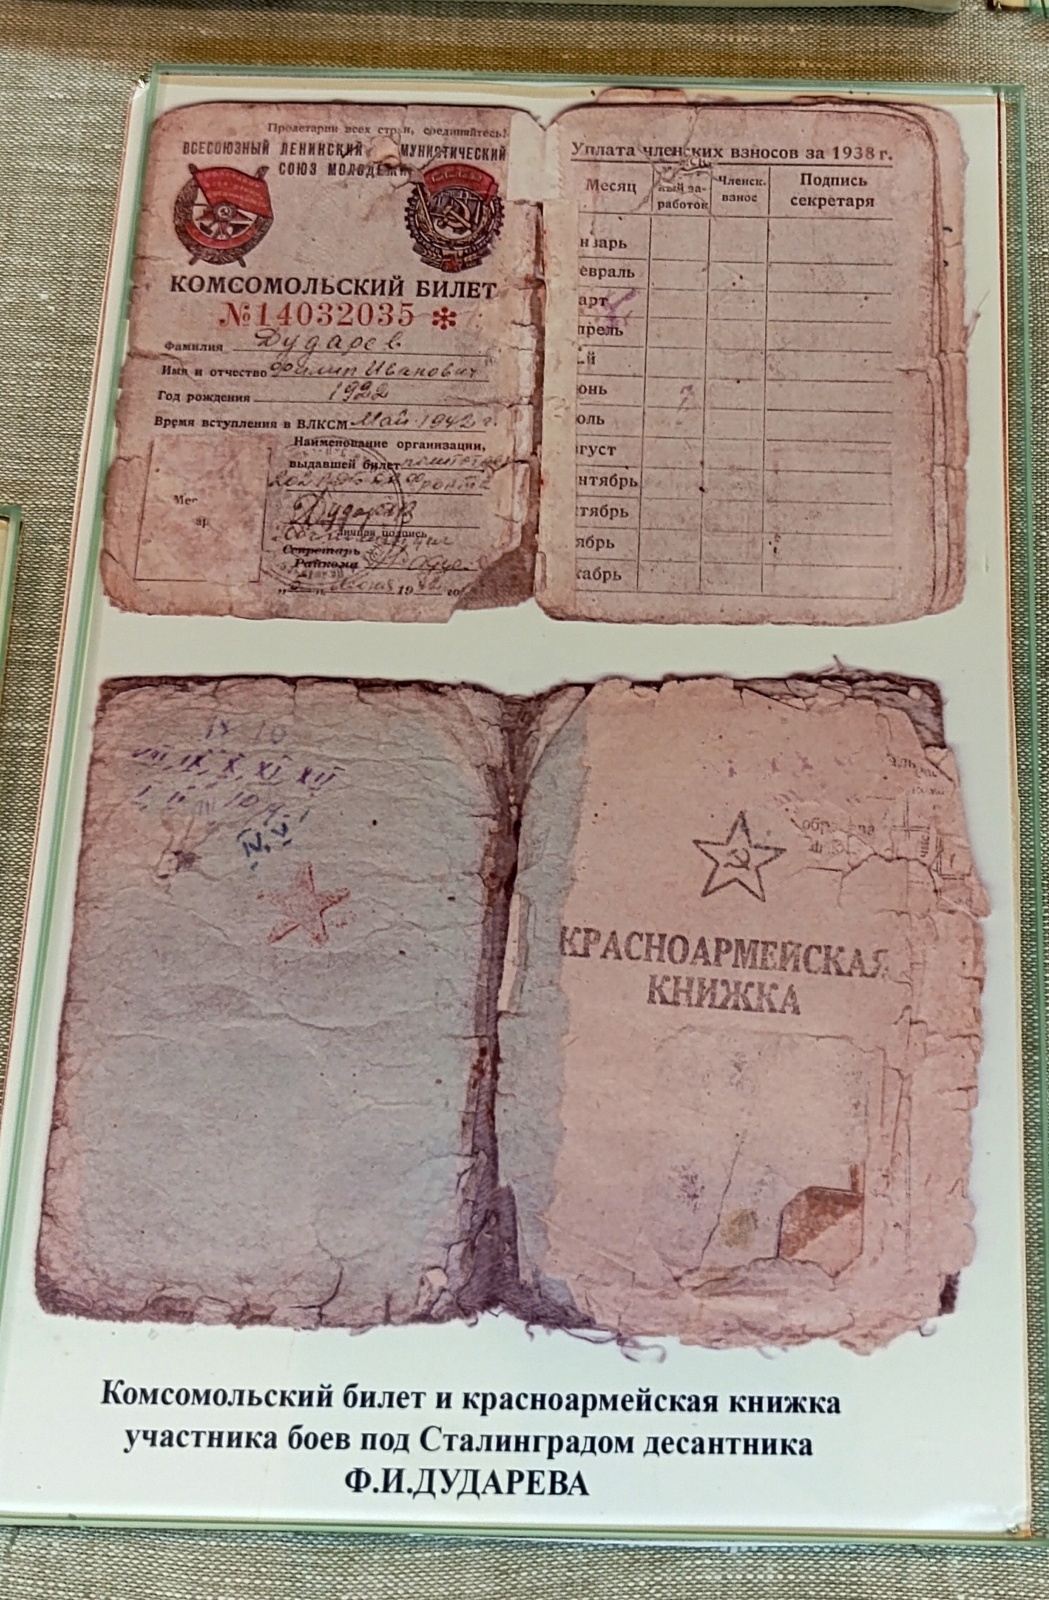 Пролетарии всех стран, соединяйтесь!
ВСЕСОЮЗНЫЙ ЛЕНИНСКИЙ МУНИСТИЧЕСКИЙ
СОЮЗ МОЛОДЕЖИ
КОМСОМОЛЬСКИЙ БИЛЕТ
№14032035 *
Фамилия Дударев
Имя и отчество Филип Иванович
Год рождения 1922
Время вступления в ВЛКСМ Май 1942 г.
Наименование организации,
выдавшей билет
Дударев
личная подпись
Секретарь
Райкома
Уплата членских взносов за 1938 г.
Месяц
ный за-
работок
Членск.
взнос
Подпись
секретаря
нварь
евраль
арт
прель
й
юнь
юль
густ
нтябрь
тябрь
ябрь
кабрь
IX X XI XII
IV, V
КРАСНОАРМЕЙСКАЯ
КНИЖКА
Комсомольский билет и красноармейская книжка
участника боев под Сталинградом десантника
Ф.И.ДУДАРЕВА